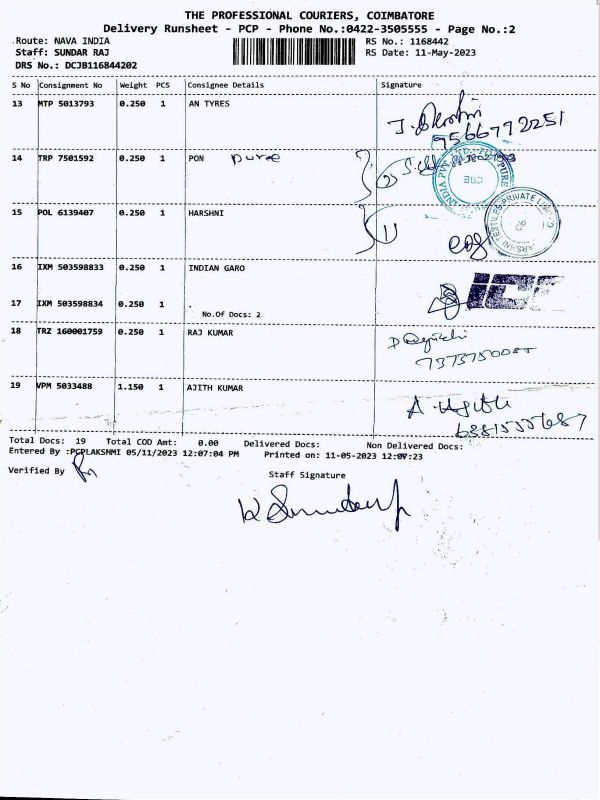 THE PROFESSIONAL COURIERS, COIMBATORE
Delivery Runsheet - PCP - Phone No.:0422-3505555 - Page No.:2
Route: NAVA INDIA RS No.: 1168442
Staff: SUNDAR RAJ RS Date: 11-May-2023
DRS No.: DCJB116844202
S No Consignment No Weight PCS Consignee Details Signature
13 MTP 5013793 0.250 1 AN TYRES
9566792251
14 TRP 7501592 0.250 1 PON pure
15 POL 6139407 0.250 1 HARSHNI
16 IXM 503598833 0.250 1 INDIAN GARO
17 IXM 503598834 0.250 1 .
No.Of Docs: 2
18 TRZ 160001759 0.250 1 RAJ KUMAR
19 VPM 5033488 1.150 1 AJITH KUMAR
Total Docs: 19 Total COD Amt: 0.00 Delivered Docs: Non Delivered Docs:
Entered By :PCPLAKSHMI 05/11/2023 12:07:04 PM Printed on: 11-05-2023 12:07:23
Verified By
Staff Signature